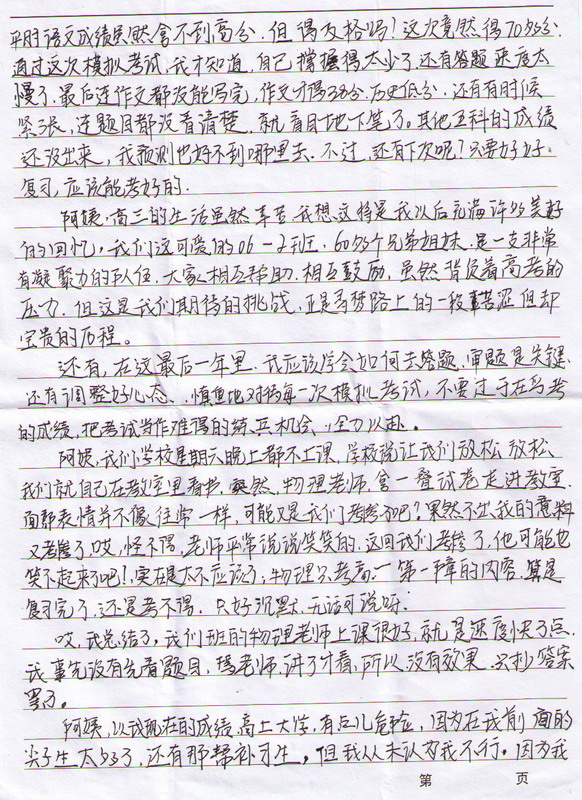 平时语文成绩虽然拿不到高分,但得及格吗!这次竟然得70多分.
通过这次模拟考试,我才知道,自己掌握得太少了.还有答题速度太
慢了.最后连作文都没能写完,作文才得38分.历史低分.还有有时候
紧张,连题目都没看清楚,就盲目地下笔了。其他五科的成绩
还没出来,我预测也好不到哪里去.不过,还有下次呢?只要好好
复习,应该能考好的.
阿姨,高三的生活虽然辛苦,我想这将是我以后充满许多美好
的回忆,我们这可爱的06-2班.60多个兄弟姐妹.是一支非常
有凝聚力的队伍,大家相互帮助.相互鼓励,虽然背负着高考的
压力.但这是我们期待的挑战,正是寻梦路上的一段苦涩但却
宝贵的历程。
还有,在这最后一年里.我应该学会如何去答题,审题是关键.
还有调整好心态、慎重地对待每一次模拟考试,不要过于在乎考
的成绩,把考试当作难得的练兵机会,全力以赴。
阿姨,我们学校星期六晚上都不上课,学校说让我们放松放松.
我们就自己在教室里看书.突然,物理老师,拿一叠试卷走进教室.
面部表情并不像往常一样,可能又是我们考惨了吧?果然不出我的意料
又考惨了.哎,怪不得,老师平常说说笑笑的.这回我们考惨了,他可能也
笑不起来了吧!实在是太不应该了,物理只考高一第一章的内容.算是
复习完了,还是考不得.只好沉默.无话可说呀!
哎,我总结了,我们班的物理老师上课很好,就是速度快了点.
我事先没有先看题目,等老师讲了才看,所以没有效果.只抄答案
罢了。
阿姨,以我现在的成绩,高上大学,有点儿危险,因为在我前面的
尖子生太多了,还有那帮补习生,但我从未认为我不行。因为我
第 页